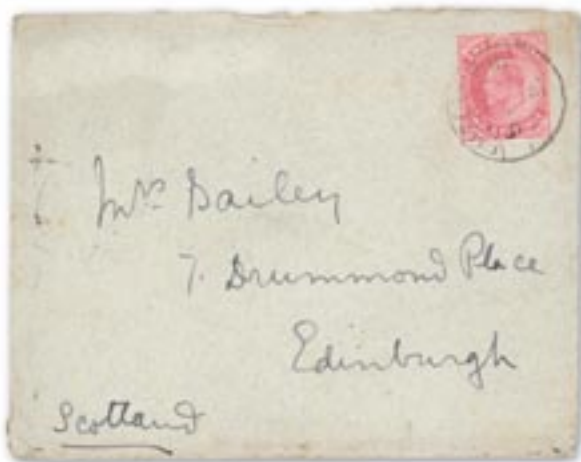 Mrs Bailey
7. Drummond Place
Edinburgh
Scotland